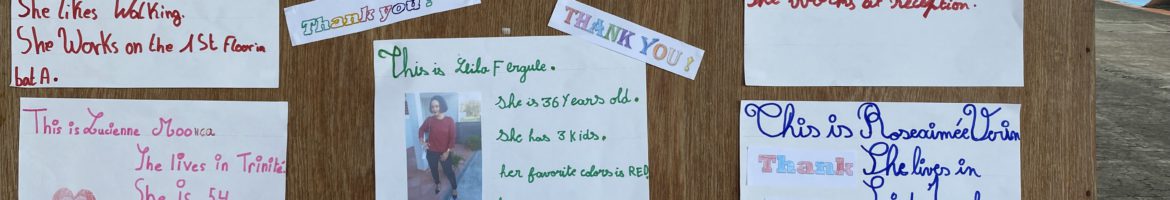 She likes Walking.
She Works on the 1St Floor in
bat A.
Thank you!
THANK YOU!
She works at reception.
This is Lucienne Moonca
She lives in Trinité
She is 54
This is Leila Fergule.
She is 36 Years old.
She has 3 Kids.
her favorite colors is RED!
This is Roseaimée Vorin
Thank
She lives in